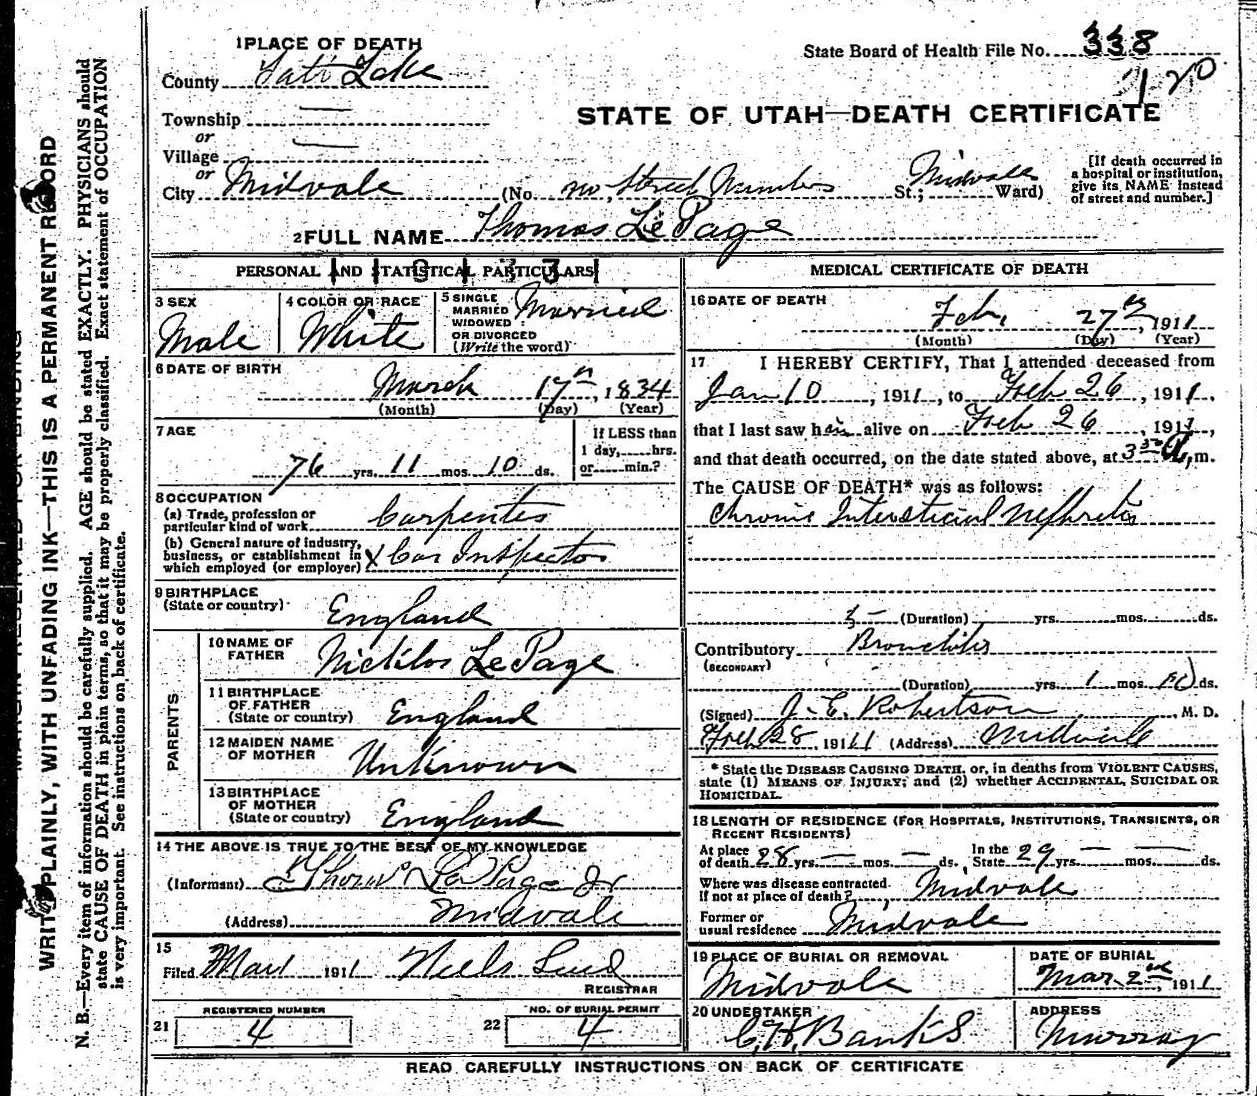 1 PLACE OF DEATH
State Board of Health File No. 338
County Salt Lake
120
Township
STATE OF UTAH—DEATH CERTIFICATE
or
Village
or
City Midvale (No. no Street Numbers St.; Midvale Ward)
[If death occurred in a hospital or institution, give its NAME instead of street and number.]
2 FULL NAME Thomas Le Page
PERSONAL AND STATISTICAL PARTICULARS
3 SEX Male
4 COLOR OR RACE White
5 SINGLE MARRIED WIDOWED OR DIVORCED (Write the word) Married
6 DATE OF BIRTH
March 17th, 1834
(Month) (Day) (Year)
7 AGE
76 yrs. 11 mos. 10 ds.
If LESS than
1 day, hrs.
or min.?
8 OCCUPATION
(a) Trade, profession or particular kind of work Carpenter
(b) General nature of industry, business, or establishment in which employed (or employer) X Car Inspector
9 BIRTHPLACE
(State or country) England
PARENTS
10 NAME OF FATHER Nicklos Le Page
11 BIRTHPLACE OF FATHER (State or country) England
12 MAIDEN NAME OF MOTHER Unknown
13 BIRTHPLACE OF MOTHER (State or country) England
14 THE ABOVE IS TRUE TO THE BEST OF MY KNOWLEDGE
(Informant) Thomas Le Page Jr
(Address) Midvale
15
Filed Mar 1 1911 Niels Lind
REGISTRAR
REGISTERED NUMBER
21 4
NO. OF BURIAL PERMIT
22 4
MEDICAL CERTIFICATE OF DEATH
16 DATE OF DEATH
Feb, 27th, 1911
(Month) (Day) (Year)
17 I HEREBY CERTIFY, That I attended deceased from
Jan 10, 1911, to Feb 26, 1911,
that I last saw him alive on Feb 26, 1911,
and that death occurred, on the date stated above, at 3 30 a, m.
The CAUSE OF DEATH* was as follows:
Chronic Intersticial Nephritis
(Duration) yrs. mos. ds.
Contributory Bronchitis
(SECONDARY)
(Duration) yrs. 1 mos. ds.
(Signed) J. E. Robertson, M. D.
Feb 28 1911 (Address) Midvale
* State the DISEASE CAUSING DEATH, or, in deaths from VIOLENT CAUSES, state (1) MEANS OF INJURY; and (2) whether ACCIDENTAL, SUICIDAL OR HOMICIDAL.
18 LENGTH OF RESIDENCE (FOR HOSPITALS, INSTITUTIONS, TRANSIENTS, OR RECENT RESIDENTS)
At place of death 28 yrs. — mos. — ds. In the State 29 yrs. — mos. — ds.
Where was disease contracted, if not at place of death? Midvale
Former or usual residence Midvale
19 PLACE OF BURIAL OR REMOVAL Midvale
DATE OF BURIAL Mar 2nd, 1911
20 UNDERTAKER C. H. Banks
ADDRESS Murray
READ CAREFULLY INSTRUCTIONS ON BACK OF CERTIFICATE
WRITE PLAINLY, WITH UNFADING INK—THIS IS A PERMANENT RECORD
N. B.—Every item of information should be carefully supplied. AGE should be stated EXACTLY. PHYSICIANS should
state CAUSE OF DEATH in plain terms, so that it may be properly classified. Exact statement of OCCUPATION
is very important. See instructions on back of certificate.